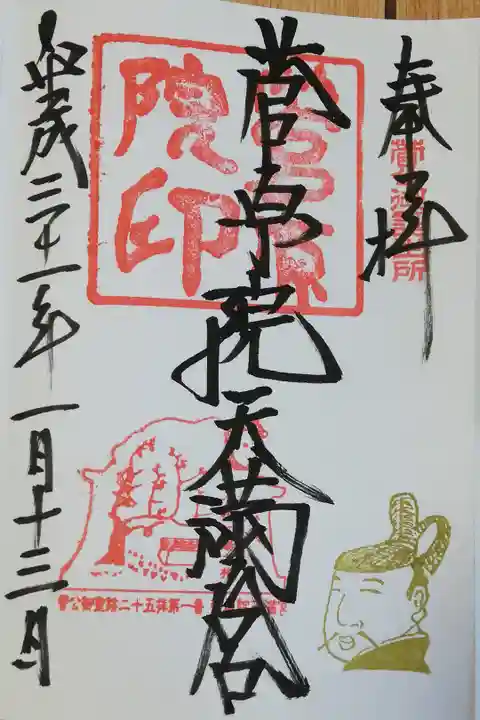 奉拝
菅公御誕生所
菅原院天満宮
菅原院印
平成三十一年一月十三日
菅公御霊跡二十五拝第一番